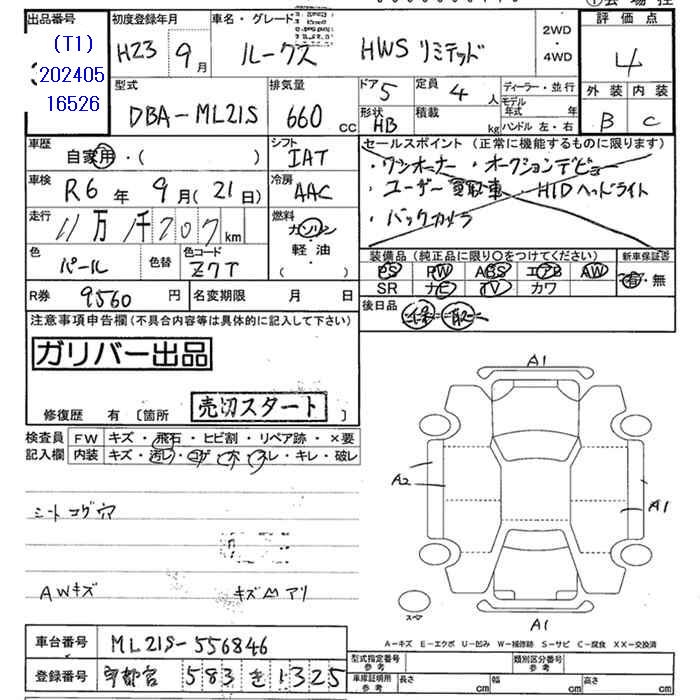 出品番号 初度登録年月 車名・グレード 評価点
(T1) H23 9月 ルークス HWS リミテッド 2WD・4WD 4
202405
16526
型式 排気量 ドア 定員 ディーラー・並行 外装 内装
DBA-ML21S 660cc 5 4人 モデル年式 年 B C
形状 積載 ハンドル 左・右
HB kg
車歴 シフト セールスポイント (正常に機能するものに限ります)
自家用・( ) IAT ・ワンオーナー ・オークションデビュー
車検 冷房 ・ユーザー買取車 ・HIDヘッドライト
R6年 9月(21日) AAC ・バックカメラ
走行 燃料
11万 1千207km ガソリン・軽油・( )
色 色替 色コード 装備品(純正品に限り○をつけてください) 新車保証書
パール Z7T PS PW ABS エアB AW 有・無
SR ナビ TV カワ
R券 9560円 名変期限 月 日 後日品 保 取
注意事項申告欄(不具合内容等は具体的に記入して下さい)
ガリバー出品
売切スタート
修復歴 有 〔箇所 〕
検査員 FW キズ・飛石・ヒビ割・リペア跡・×要
記入欄 内装 キズ・汚レ・コゲ・穴・スレ・キレ・破レ
A1
A2
A1
シートコゲ穴
AWキズ キズ凹アリ
スペア
A1
A-キズ E-エクボ U-凹み W-補修跡 S-サビ C-腐食 XX-交換済
車台番号 ML21S-556846
登録番号 宇都宮 583 き 1325
型式指定番号 参考 類別区分番号 参考
車庫証明用 参考 長さ cm 幅 cm 高さ cm